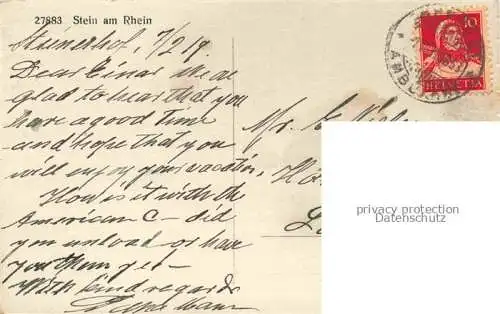 27883 Stein am Rhein
Steinerhof, 7/2 19
Dear Einar We are
glad to hear that you
have a good time
and hope that you
will enjoy your vacation.
How is it with the
American C - did
you unload or have
you them yet -
With kind regards
10
HELVETIA
AMBULANT
Mr. E.
privacy protection
Datenschutz